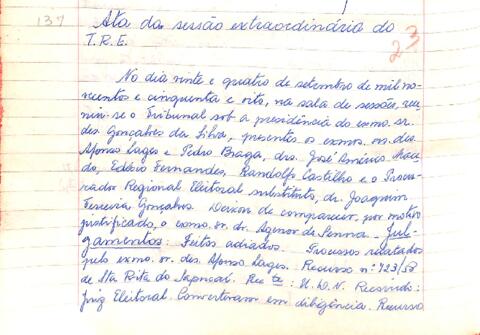 137
Ata da sessão extraordinária do
T.R.E.
23
No dia vinte e quatro de setembro de mil no-
vecentos e cinquenta e oito, na sala de sessões, reu-
niu-se o Tribunal sob a presidência do exmo. sr.
des. Gonçalves da Silva, presentes os exmos. srs. des.
Afonso Lages e Pedro Braga, drs. José Américo Mace-
do, Edésio Fernandes, Randolfo Castilho e o Procu-
rador Regional Eleitoral substituto, dr. Joaquim
Ferreira Gonçalves. Deixou de comparecer, por motivo
justificado, o exmo. sr. dr. Agenor de Senna. - Jul-
gamentos: Feitos adiados. Processos relatados
pelo exmo. sr. des. Afonso Lages. Recurso nº 723/58
de Sta Rita do Sapucaí. Rec te: U.D.N. Recorrido:
Juiz Eleitoral. Converteram em diligência. Recurso